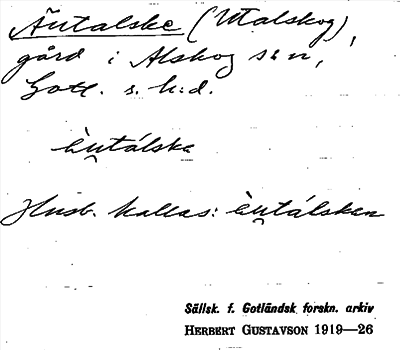 Äntalske (Utalskog),
gård i Alskog s:n,
Gotl. s. h:d.
ä̀ntálska
Husb. kallas: ä̀ntálsken
Sällsk. f. Gotländsk forskn. arkiv
HERBERT GUSTAVSON 1919—26